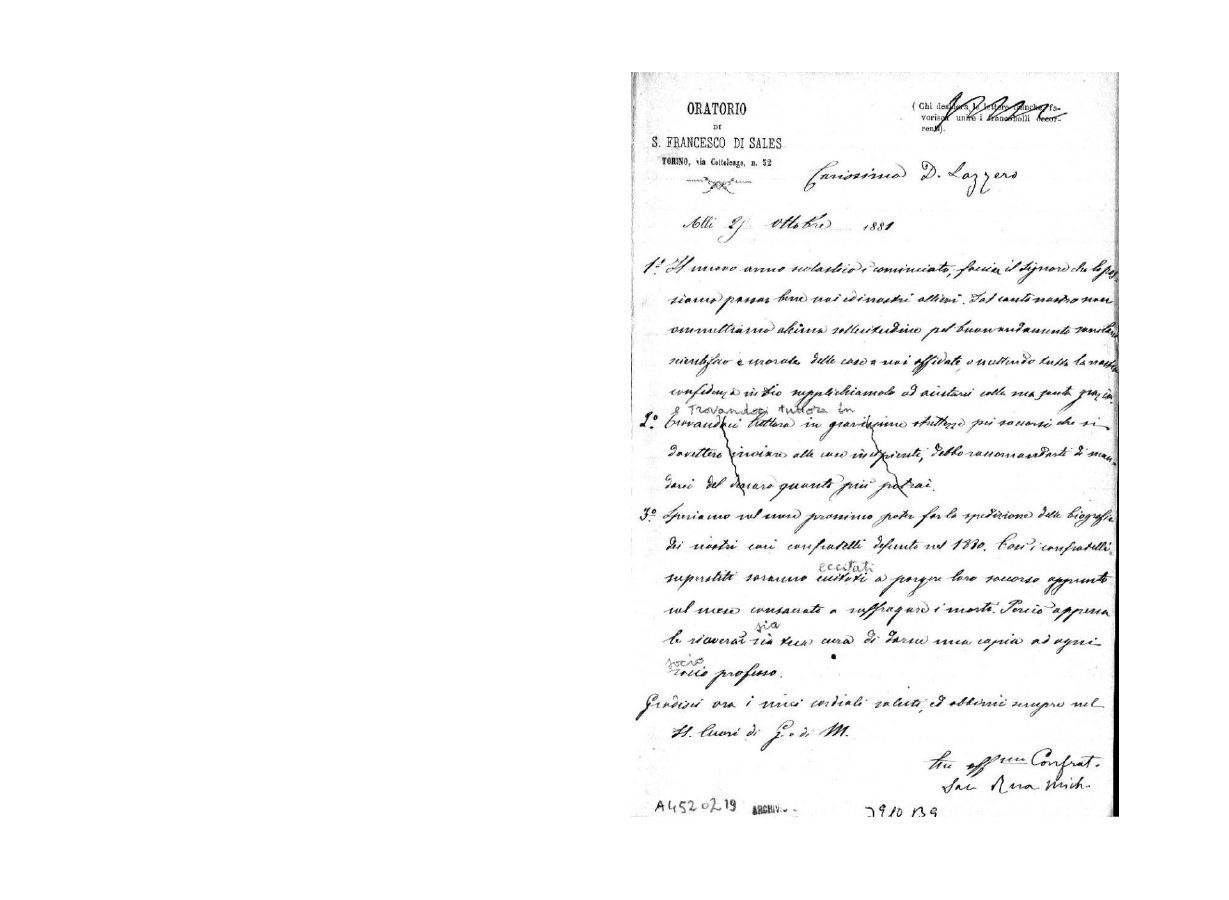 ORATORIO
DI
S. FRANCESCO DI SALES
TORINO, via Cottolengo, n. 32
( Chi desidera la lettera fa-
vorisca unire i francobolli occor-
renti).
Carissimo D. Lazzero
Alli 25 Ottobre 1881
1º Il nuovo anno scolastico è cominciato, faccia il Signore che lo pos-
siamo passar bene noi ed i nostri allievi. Dal canto nostro non
ommettiamo alcuna sollecitudine pel buon andamento sanitario
scientifico e morale delle case a noi affidate, e mettendo tutta la nostra
confidenza in Dio supplichiamolo ad aiutarci colla sua santa grazia.
e Trovandoci tuttora in
2º Trovandoci tuttora in gravissime strettezze pei soccorsi che si
dovettero inviare alle case incipienti, debbo raccomandarti di man-
darci del denaro quanto più potrai.
3º Speriamo nel mese prossimo poter far la spedizione delle biografie
dei nostri cari confratelli defunti nel 1880. Così i confratelli
eccitati
superstiti saranno eccitati a porgere loro soccorso appunto
nel mese consacrato a suffragare i morti. Perciò appena
sia
le riceverai sia tua cura di darne una copia ad ogni
socio
socio professo.
Gradisci ora i miei cordiali saluti, ed abbimi sempre nel
SS. Cuori di G. e di M.
tuo aff.mo Confrat.
Sac. Rua Mich.
A4520219
ARCHIV
3910 B9